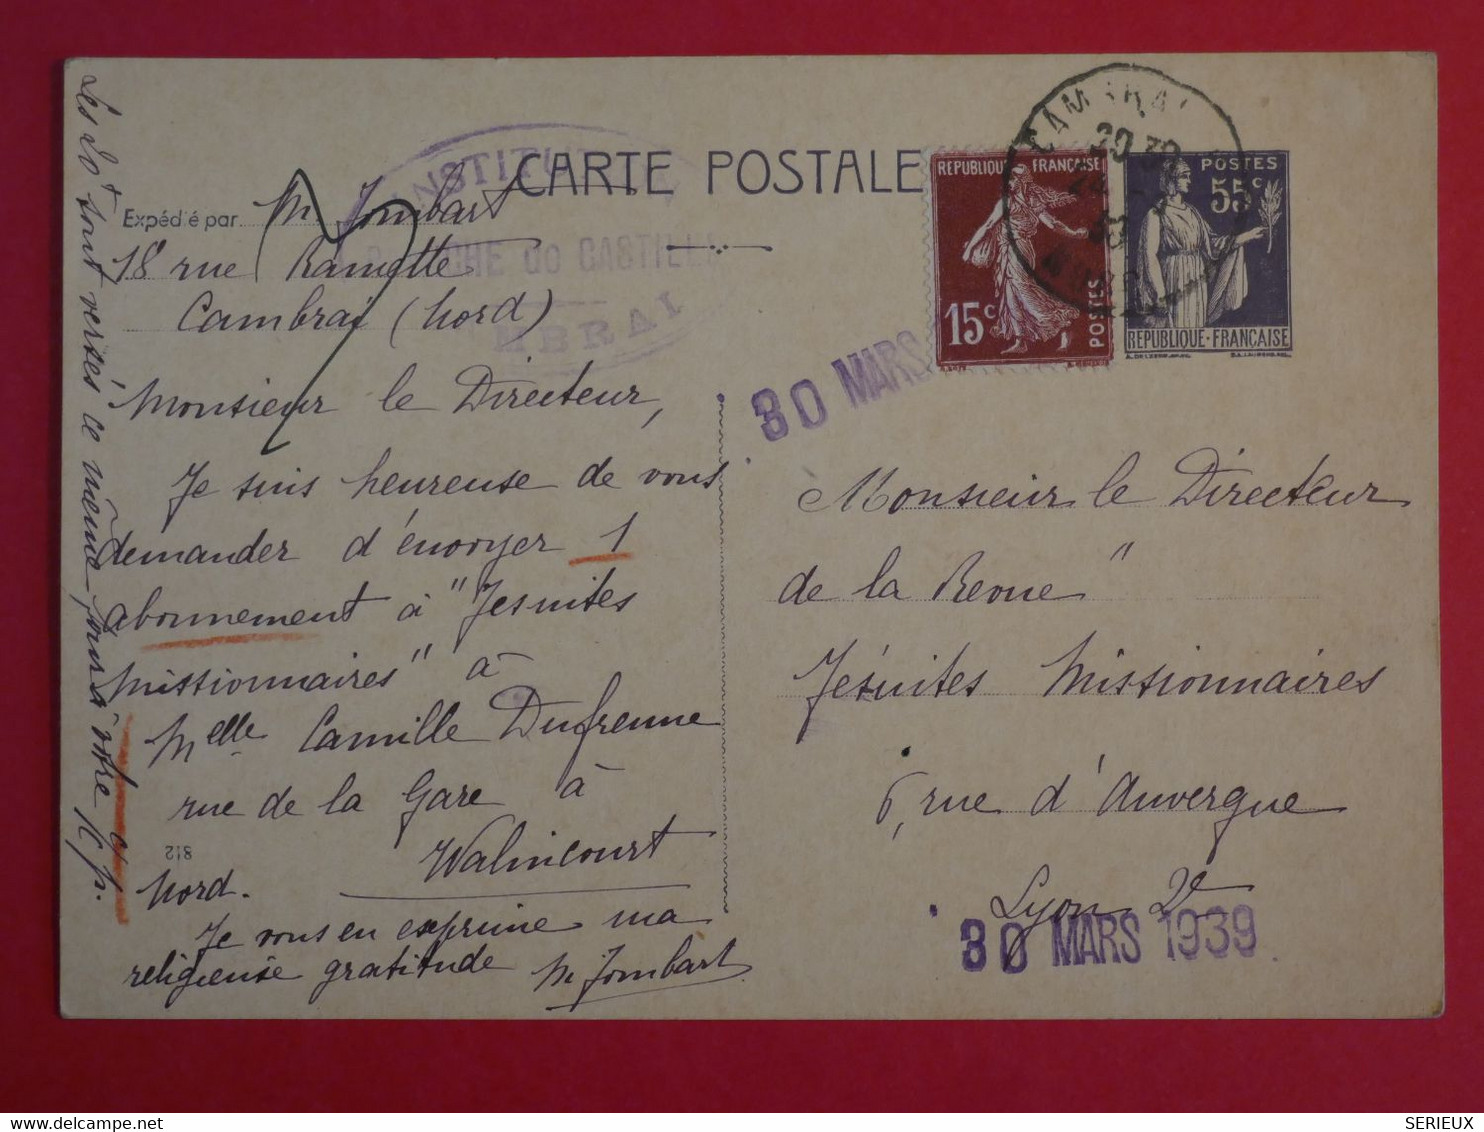 CARTE POSTALE
INSTITUT
BLANCHE de CASTILLE
CAMBRAI
Expédié par M. Jombart
18 rue Ramette
Cambrai (Nord)
Monsieur le Directeur,
Je suis heureuse de vous
demander d'envoyer 1
abonnement à "Jesuites
Missionnaires" à
Melle Camille Dufrenne
rue de la Gare à
Walincourt
Nord.
Je vous en exprime ma
religieuse gratitude M Jombart
812
Les 20f sont versés ce même jour à votre c/c p.
REPUBLIQUE FRANÇAISE
15c
POSTES
CAMBRAI
20 30
NORD
POSTES
55c
REPUBLIQUE-FRANÇAISE
30 MARS
Monsieur le Directeur
de la Revue "
Jésuites Missionnaires
6, rue d'Auvergne
Lyon 2e
30 MARS 1939
SERIEUX